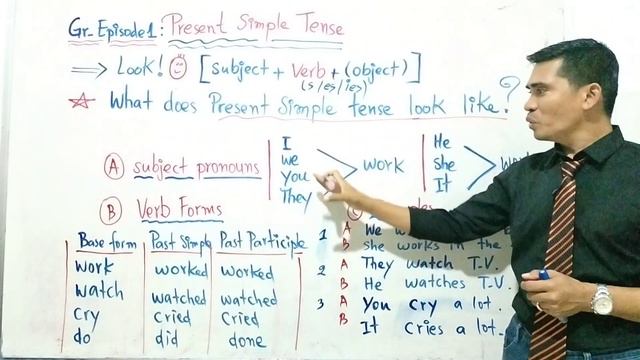 Gr_ Episode 1: Present Simple Tense
⇒ Look! [subject + Verb + (object)]
(s/es/ies)
☆ What does Present Simple tense look like?
A subject pronouns
I
we
You
They
work
He
she
It
B Verb Forms
Base form Past Simple Past Participle
work worked worked
watch watched watched
cry cried cried
do did done
1 A We
B she works in the
2 A They watch T.V.
B He watches T.V.
3 A You cry a lot.
B It cries a lot.